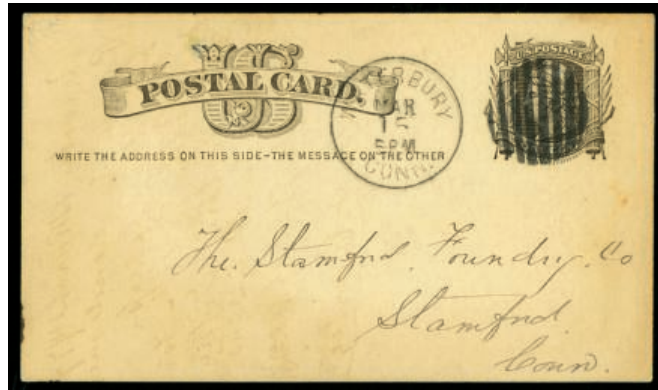 U.S. POSTAGE
US
POSTAL CARD.
WATERBURY
MAR
15
5 PM
CONN.
WRITE THE ADDRESS ON THIS SIDE-THE MESSAGE ON THE OTHER
The Stamford Foundry Co
Stamford.
Conn.